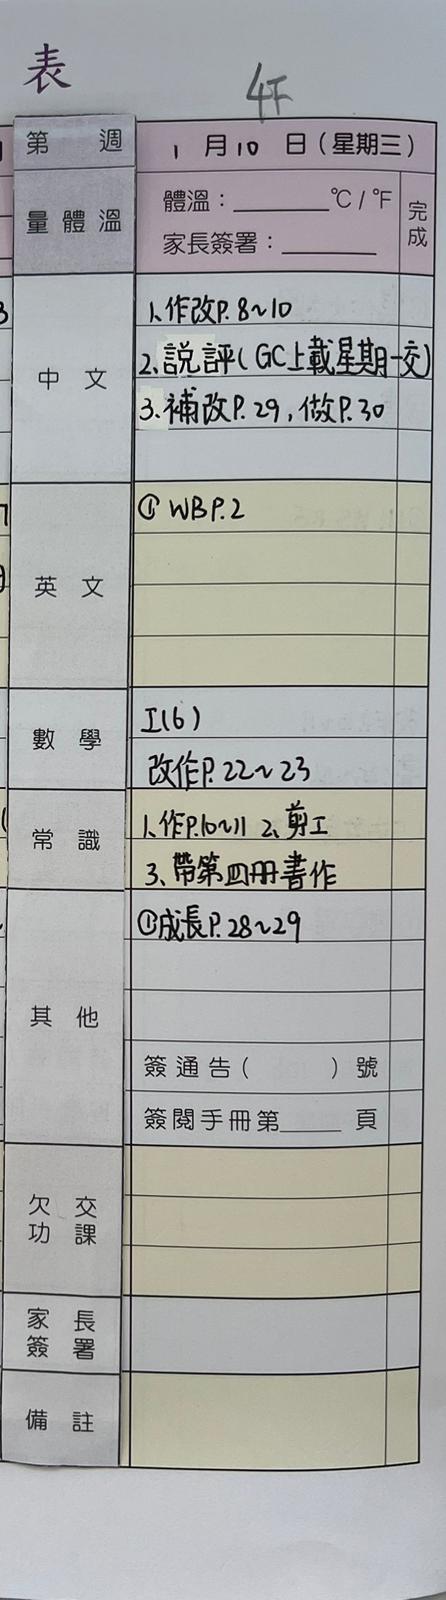 表
4F
第 週
1 月 10 日 (星期三)
量體溫
體溫：______℃/℉
家長簽署：______
完成
中文
1.作改P.8~10
2.説評(GC上載星期一交)
3.補改P.29,做P.30
英文
① WBP.2
數學
I(6)
改作P.22~23
常識
1.作P.10~11 2.剪工
3.帶第四冊書作
其他
①成長P.28~29
簽通告( )號
簽閱手冊第____頁
欠交
功課
家長
簽署
備註